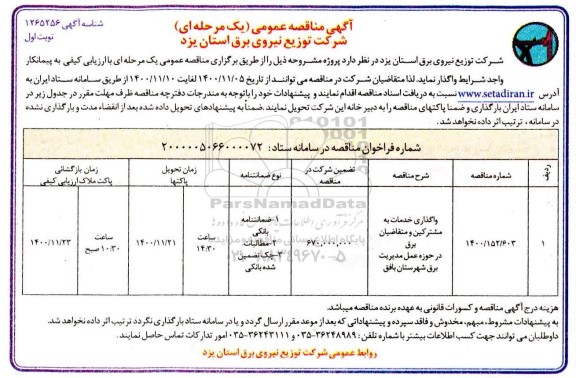 آگهی مناقصه عمومی (یک مرحله ای)
شرکت توزیع نیروی برق استان یزد
شناسه آگهی ۱۲۶۵۲۵۶
نوبت اول
شرکت توزیع نیروی برق استان یزد در نظر دارد پروژه مشروحه ذیل را از طریق برگزاری مناقصه عمومی یک مرحله ای با ارزیابی کیفی به پیمانکار
واجد شرایط واگذار نماید. لذا متقاضیان شرکت در مناقصه می توانند از تاریخ ۱۴۰۰/۱۱/۰۵ لغایت ۱۴۰۰/۱۱/۱۰ از طریق سامانه ستاد ایران به
آدرس www.setadiran.ir نسبت به دریافت اسناد مناقصه اقدام نمایند و پیشنهادات خود را باتوجه به مندرجات دفترچه مناقصه ظرف مهلت مقرر در جدول زیر در
سامانه ستاد ایران بارگذاری و ضمنا پاکتهای مناقصه را به دبیر خانه این شرکت تحویل نمایند. ضمناً به پیشنهادهای تحویل داده شده بعد از انقضاء مدت و بارگذاری نشده
در سامانه ، ترتیب اثر داده نخواهد شد.
شماره فراخوان مناقصه در سامانه ستاد: ۲۰۰۰۰۰۵۰۶۶۰۰۰۰۷۲
ردیف
شماره مناقصه
شرح مناقصه
تضمین شرکت در مناقصه
نوع ضمانتنامه
زمان تحویل پاکتها
زمان بازگشائی پاکت ملاک ارزیابی کیفی
۱
۱۴۰۰/۱۵۲/۶۰۳
واگذاری خدمات به
مشترکین و متقاضیان
برق
در حوزه عمل مدیریت
برق شهرستان بافق
۱-ضمانتنامه
بانکی
۲-مطالبات
۳-چک تضمین
شده بانکی
ساعت
۱۴:۳۰
۱۴۰۰/۱۱/۲۱
ساعت
۱۰:۳۰ صبح
۱۴۰۰/۱۱/۲۳
ParsNamadData
هزینه درج آگهی مناقصه و کسورات قانونی به عهده برنده مناقصه میباشد.
به پیشنهادات مشروط، مبهم، مخدوش و فاقد سپرده و پیشنهاداتی که بعد از موعد مقرر ارسال گردد و یا در سامانه ستاد بارگذاری نگردد ترتیب اثر داده نخواهد شد.
داوطلبان می توانند جهت کسب اطلاعات بیشتر با شماره تلفن : ۳۶۲۴۸۹۸۹-۰۳۵ و ۳۶۲۴۳۱۱۱-۰۳۵ امور تدارکات تماس حاصل نمایند.
روابط عمومی شرکت توزیع نیروی برق استان یزد